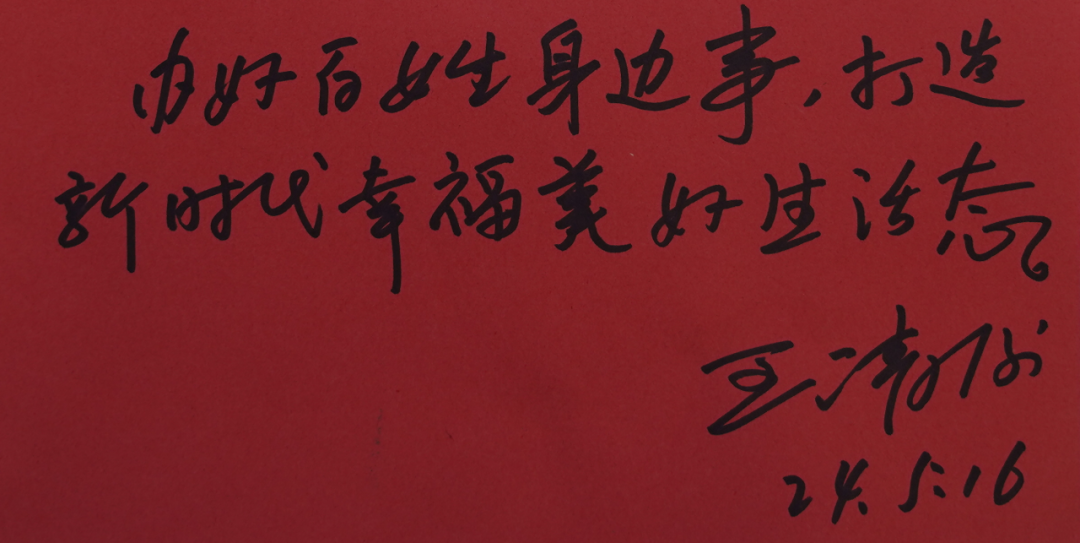 办好百姓身边事,打造
新时代幸福美好生活态。
王
24.5.16